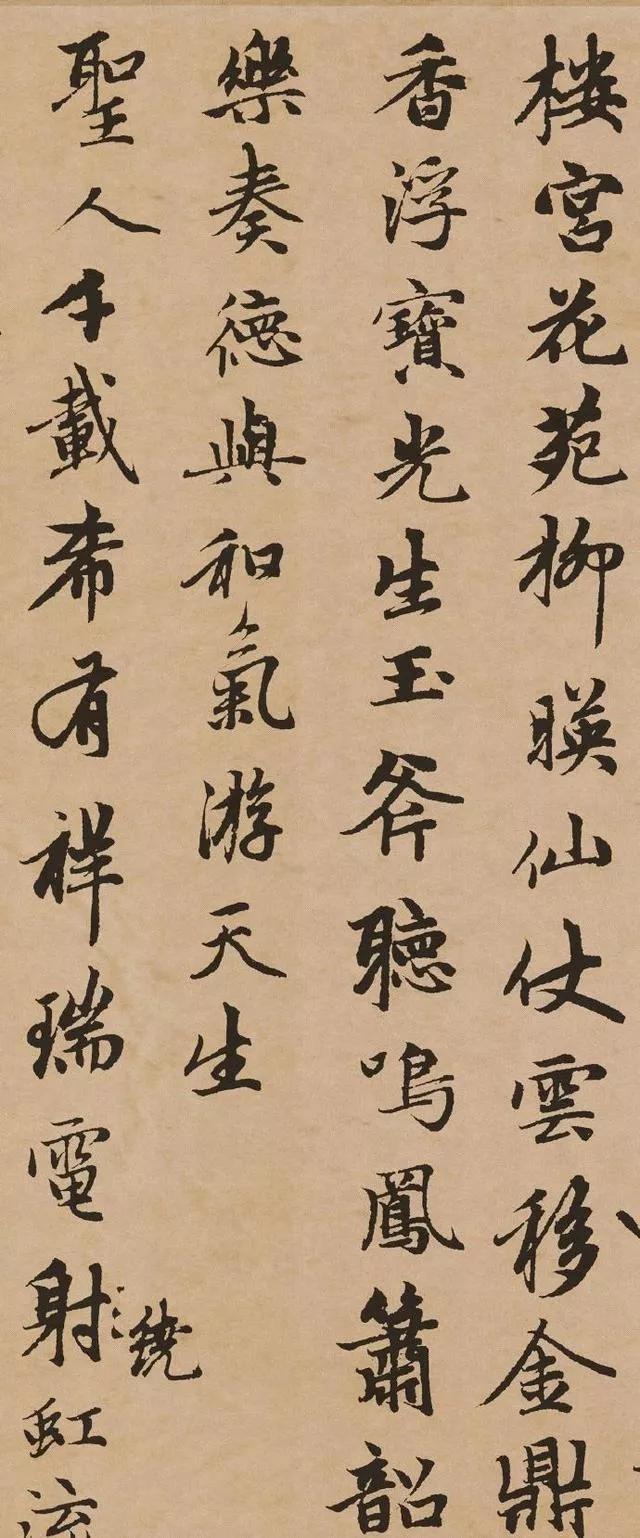 楼宫花苑柳暎仙仗雲移金鼎
香浮寶光生玉斧聽鳴鳳簫韶
樂奏德與和氣游天生
聖人千載希有祥瑞電射虹流
繞